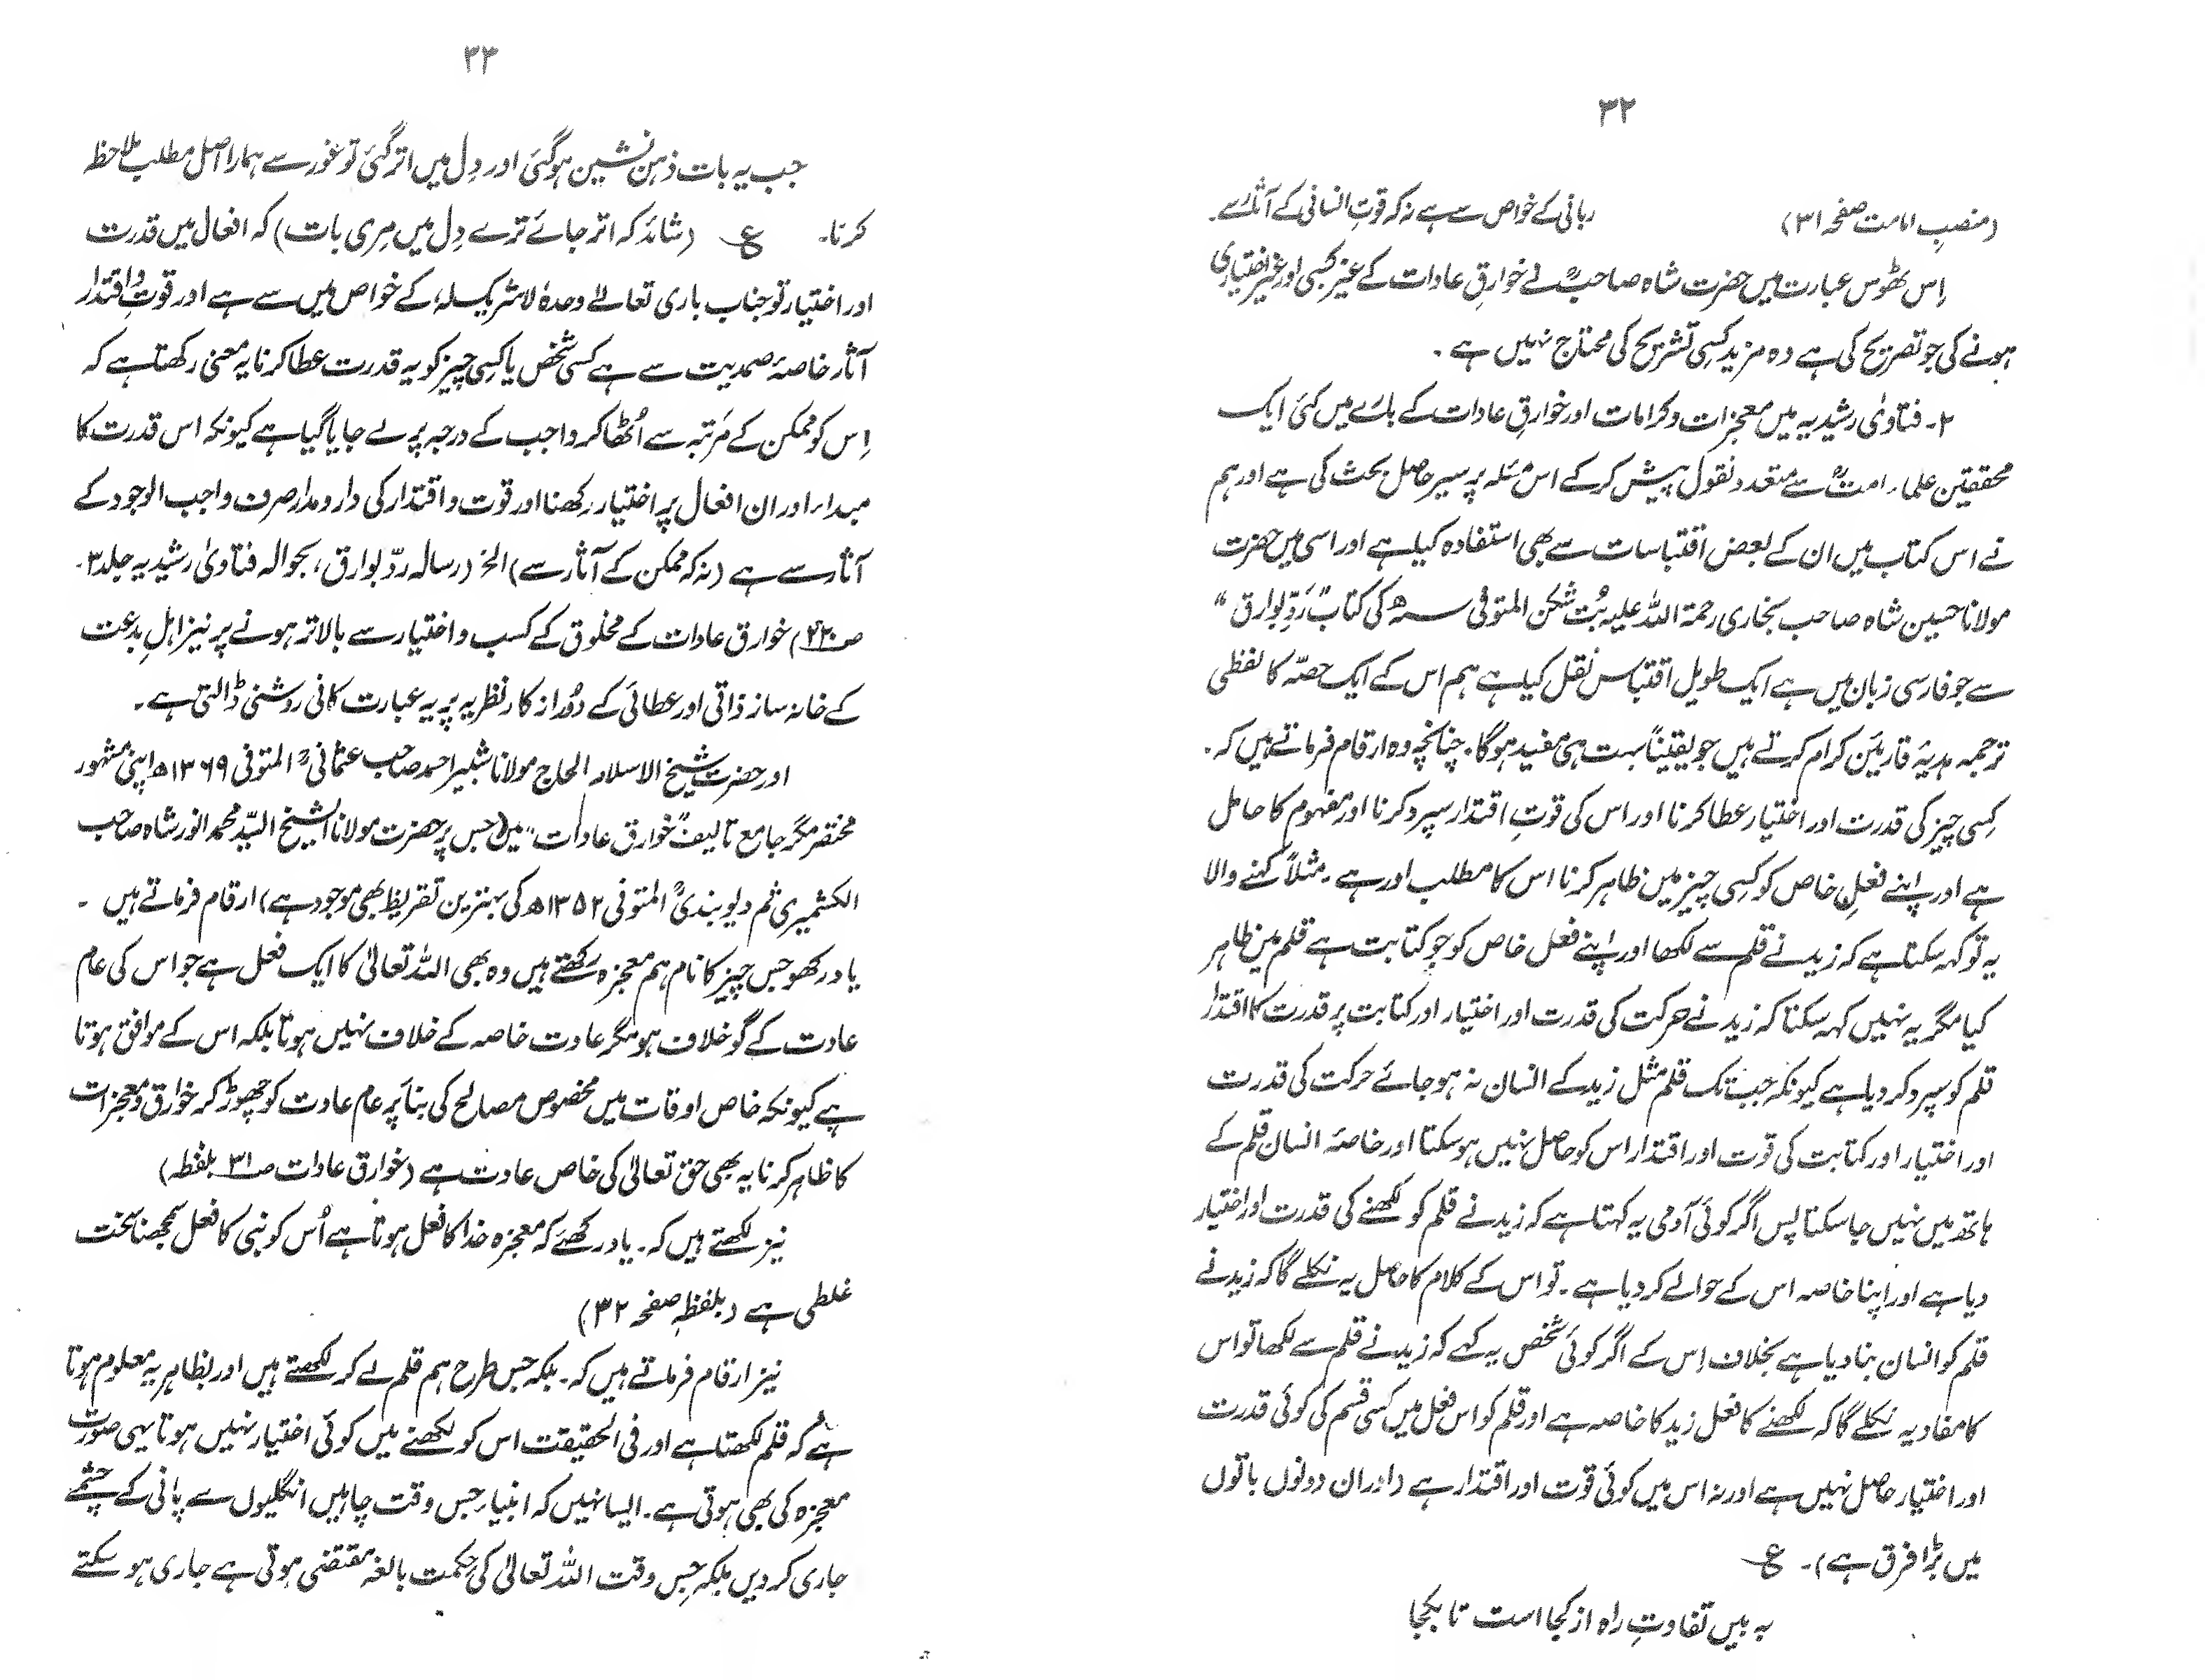 ۳۲
(منصبِ امامت صفحہ ۳۱) ربانی کے خواص سے ہے نہ کہ قوتِ انسانی کے آثار سے۔
اِس ٹھوس عبارت میں حضرت شاہ صاحبؒ نے خوارقِ عادات کے غیر کسبی اور غیر اختیاری
ہونے کی جو تصریح کی ہے وہ مزید کسِی تشریح کی محتاج نہیں ہے ۔
۲۔ فتاویٰ رشیدیہ میں معجزات و کرامات اور خوارقِ عادات کے بارے میں کئی ایک
محققین علماء امتؒ سے متعدد نقول پیش کر کے اس مسئلہ پر سیر حاصل بحث کی ہے اور ہم
نے اس کتاب میں ان کے بعض اقتباسات سے بھی استفادہ کیا ہے اور اسی میں حضرت
مولانا حسین شاہ صاحب بخاری رحمۃ اللہ علیہ بُت شکن المتوفی سنہ ھ کی کتاب "رَدِّ بوارق"
سے جو فارسی زبان میں ہے ایک طویل اقتباس نقل کیا ہے ہم اس کے ایک حصّہ کا لفظی
ترجمہ ہدیۂ قارئین کرام کرتے ہیں جو یقیناً بہت ہی مفید ہوگا۔ چنانچہ وہ ارقام فرماتے ہیں کہ۔
کِسی چیز کی قدرت اور اختیار عطا کرنا اور اس کی قوتِ اقتدار سپرد کرنا اور مفہوم کا حامل
ہے اور اپنے فعلِ خاص کو کِسی چیز میں ظاہر کرنا اس کا مطلب اور ہے۔ مثلاً کہنے والا
یہ تو کہہ سکتا ہے کہ زید نے قلم سے لکھا اور اپنے فعل خاص کو جو کتابت ہے قلم میں ظاہر
کیا مگر یہ نہیں کہہ سکتا کہ زید نے حرکت کی قدرت اور اختیار اور کتابت پر قدرت کا اقتدار
قلم کو سپرد کر دیا ہے کیونکہ جب تک قلم مثل زید کے انسان نہ ہو جائے حرکت کی قدرت
اور اختیار اور کتابت کی قوت اور اقتدار اس کو حاصل نہیں ہو سکتا اور خاصۂ انسان قلم کے
ہاتھ میں نہیں جا سکتا پس اگر کوئی آدمی یہ کہتا ہے کہ زید نے قلم کو لکھنے کی قدرت اور اختیار
دیا ہے اور اپنا خاصہ اس کے حوالے کر دیا ہے۔ تو اس کے کلام کا حاصل یہ نکلے گا کہ زید نے
قلم کو انسان بنا دیا ہے بخلاف اِس کے اگر کوئی شخص یہ کہے کہ زید نے قلم سے لکھا تو اس
کا مفاد یہ نکلے گا کہ لکھنے کا فعل زید کا خاصہ ہے اور قلم کو اس فعل میں کسی قسم کی کوئی قدرت
اور اختیار حاصل نہیں ہے اور نہ اس میں کوئی قوت اور اقتدار ہے (اور ان دونوں باتوں
میں بڑا فرق ہے)۔ ع
بہ بیں تفاوتِ راہ از کجا است تا بکجا
۳۳
جب یہ بات ذہن نشین ہو گئی اور دِل میں اتر گئی تو غور سے ہمارا اصل مطلب ملاحظہ
کرنا۔ ع (شائد کہ اتر جائے ترے دِل میں مِری بات) کہ افعال میں قدرت
اور اختیار تو جناب باری تعالےٰ وحدہٗ لا شریک لہٗ کے خواص میں سے ہے اور قوت و اقتدار
آثار خاصۂ صمدیت سے ہے کسی شخص یا کسِی چیز کو یہ قدرت عطا کرنا یہ معنی رکھتا ہے کہ
اِس کو ممکن کے مَرتبہ سے اُٹھا کر واجب کے درجہ پر لے جایا گیا ہے کیونکہ اس قدرت کا
مبداء اور ان افعال پر اختیار رکھنا اور قوت و اقتدار کی دار و مدار صرف واجب الوجود کے
آثار سے ہے (نہ کہ ممکن کے آثار سے) الخ (رسالہ ردّ بوارق، بحوالہ فتاویٰ رشیدیہ جلد ۳۔
صـ) خوارق عادات کے مخلوق کے کسب و اختیار سے بالاتر ہونے پر نیز اہلِ بدعت
کے خانہ ساز ذاتی اور عطائی کے دُور از کار نظریہ پر یہ عبارت کافی روشنی ڈالتی ہے۔
اور حضرت شیخ الاسلام الحاج مولانا شبیر احمد صاحب عثمانیؒ المتوفی ۱۳۶۹ھ اپنی مشہور
مختصر مگر جامع تالیف "خوارق عادات" میں (جس پر حضرت مولانا الشیخ السّید محمد انور شاہ صاحب
الکشمیری ثم دیوبندیؒ المتوفی ۱۳۵۲ھ کی بہترین تقریظ بھی موجود ہے) ارقام فرماتے ہیں ۔
یاد رکھو جس چیز کا نام ہم معجزہ رکھتے ہیں وہ بھی اللہ تعالیٰ کا ایک فعل ہے جو اس کی عام
عادت کے گو خلاف ہو مگر عادت خاصہ کے خلاف نہیں ہوتا بلکہ اس کے موافق ہوتا
ہے کیونکہ خاص اوقات میں مخصوص مصالح کی بنا پر عام عادت کو چھوڑ کر خوارق و معجزات
کا ظاہر کرنا یہ بھی حق تعالیٰ کی خاص عادت ہے (خوارق عادات صـ۳۱ بلفظہ)
نیز لکھتے ہیں کہ۔ یاد رکھئے کہ معجزہ خدا کا فعل ہوتا ہے اُس کو نبی کا فعل سمجھنا سخت
غلطی ہے (بلفظہٖ صفحہ ۳۲)
نیز ارقام فرماتے ہیں کہ۔ بلکہ جس طرح ہم قلم لے کر لکھتے ہیں اور بظاہر یہ معلوم ہوتا
ہے کہ قلم لکھتا ہے اور فی الحقیقت اس کو لکھنے میں کوئی اختیار نہیں ہوتا یہی صورت
معجزہ کی بھی ہوتی ہے۔ ایسا نہیں کہ انبیاء جس وقت چاہیں انگلیوں سے پانی کے چشمے
جاری کر دیں بلکہ جِس وقت اللہ تعالیٰ کی حِکمت بالغہ مقتضی ہوتی ہے جاری ہو سکتے